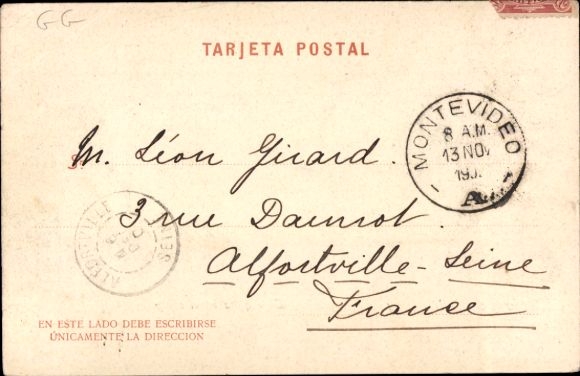 GG
TARJETA POSTAL
MONTEVIDEO
8 A.M.
13 NOV
190
M. Léon Girard.
3 rue
Alfortville - Seine
France
ALFORTVILLE
SEINE
EN ESTE LADO DEBE ESCRIBIRSE
ÚNICAMENTE LA DIRECCION